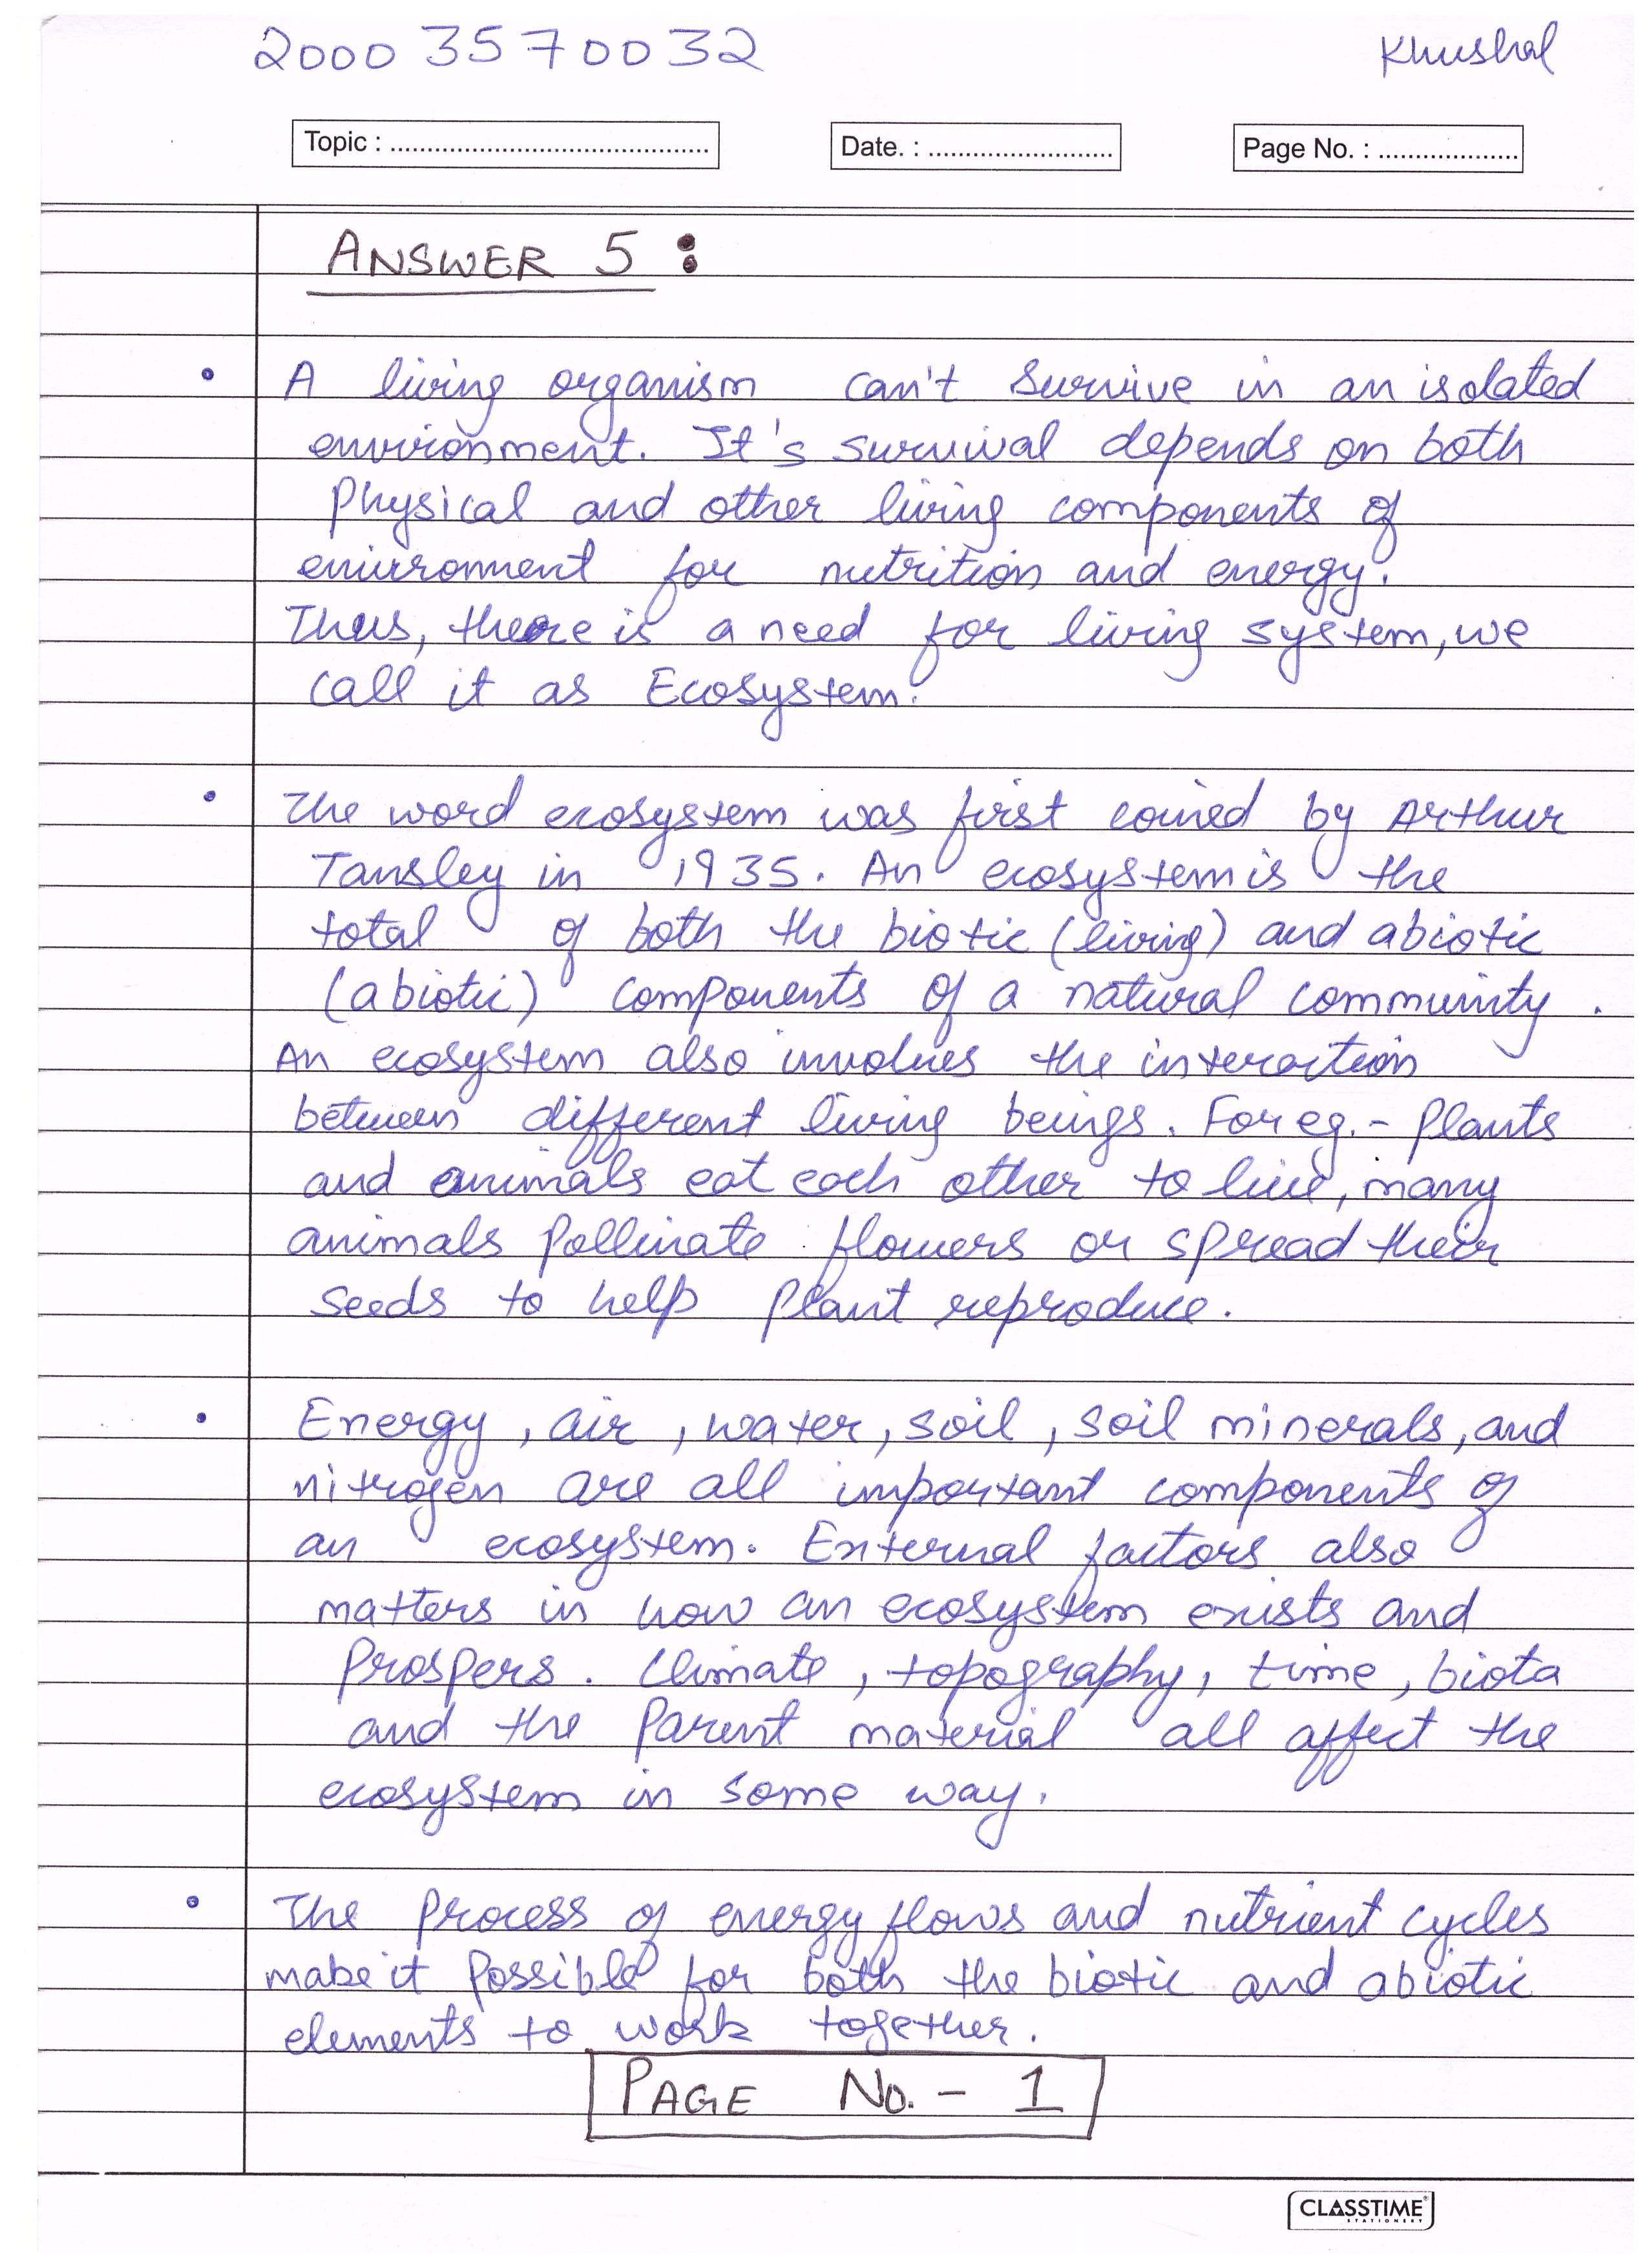 20003570032 Khushal
Topic : ........................................... Date. : ......................... Page No. : ...................
ANSWER 5 :
• A living organism can't survive in an isolated
environment. It's survival depends on both
Physical and other living components of
environment for nutrition and energy.
Thus, there is a need for living system, we
call it as Ecosystem.
• The word ecosystem was first coined by Arthur
Tansley in 1935. An ecosystem is the
total of both the biotic (living) and abiotic
(abiotic) components of a natural community.
An ecosystem also involves the interaction
between different living beings. For eg. - Plants
and animals eat each other to live, many
animals Pollinate flowers or spread their
seeds to help plant reproduce.
• Energy, air, water, soil, soil minerals, and
nitrogen are all important components of
an ecosystem. External factors also
matters in how an ecosystem exists and
Prospers. Climate, topography, time, biota
and the Parent material all affect the
ecosystem in some way.
• The process of energy flows and nutrient cycles
make it possible for both the biotic and abiotic
elements to work together.
PAGE No. - 1
CLASSTIME
STATIONERY